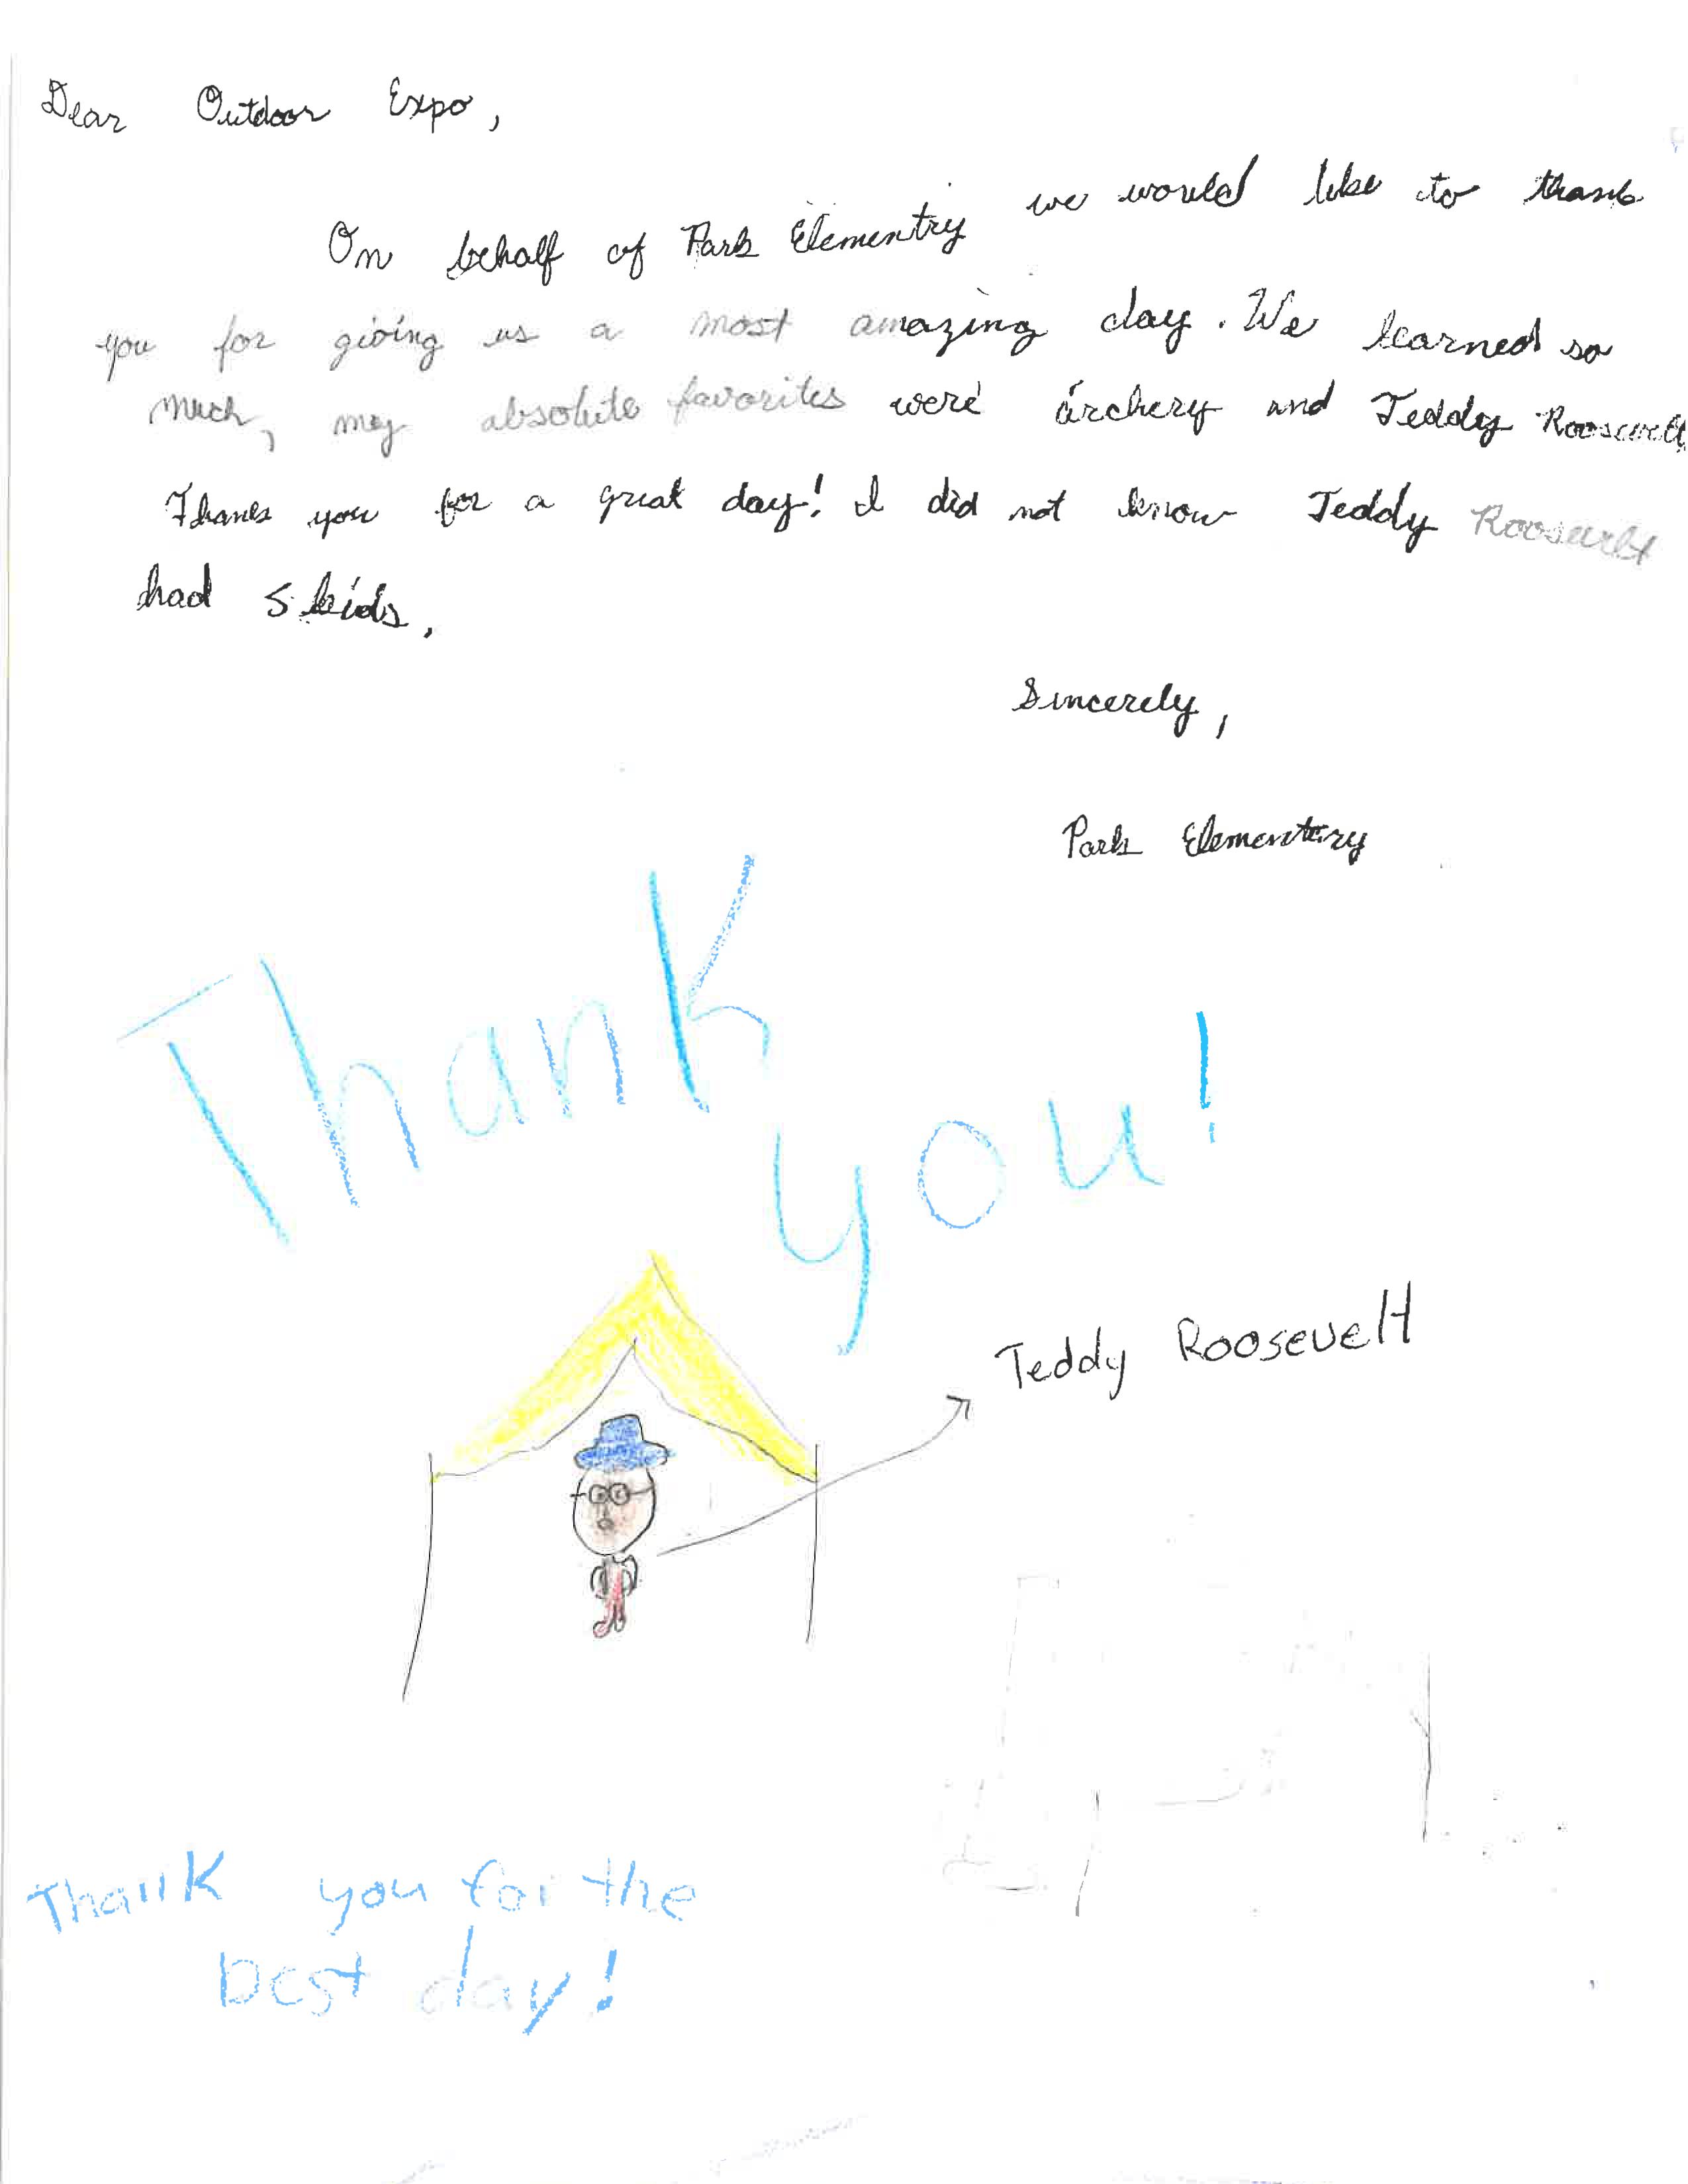 Dear Outdoor Expo,
On behalf of Park Elementry we would like to thank
you for giving us a most amazing day. We learned so
much, my absolute favorites were archery and Teddy Roosevelt
Thank you for a great day! I did not know Teddy Roosevelt
had 5 kids.
Sincerely,
Park Elementary
Thank
you!
Teddy Roosevelt
Thank you for the
best day!